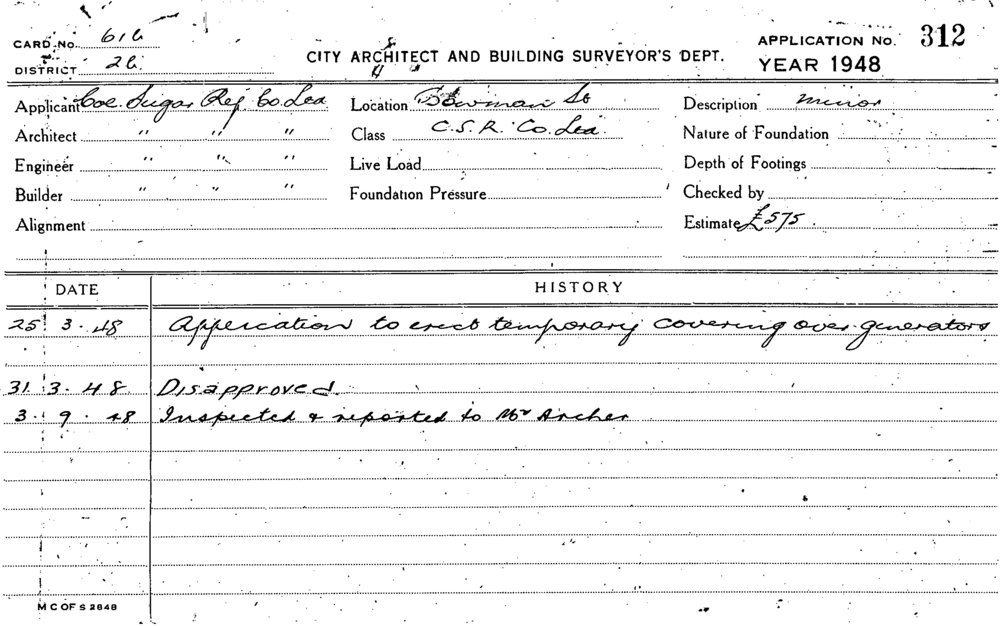 CARD No. 616
DISTRICT 26.
CITY ARCHITECT AND BUILDING SURVEYOR'S DEPT.
APPLICATION No. 312
YEAR 1948
Applicant Col. Sugar Ref. Co. Ltd Location Bowman St Description minor
Architect " " " Class C.S.R. Co. Ltd. Nature of Foundation
Engineer " " " Live Load Depth of Footings
Builder " " " Foundation Pressure Checked by
Alignment Estimate £575.
DATE HISTORY
25 3.48 Application to erect temporary covering over generators
31 3.48 Disapproved.
3. 9.48 Inspected & reported to Mr Archer
M C OF S 2848